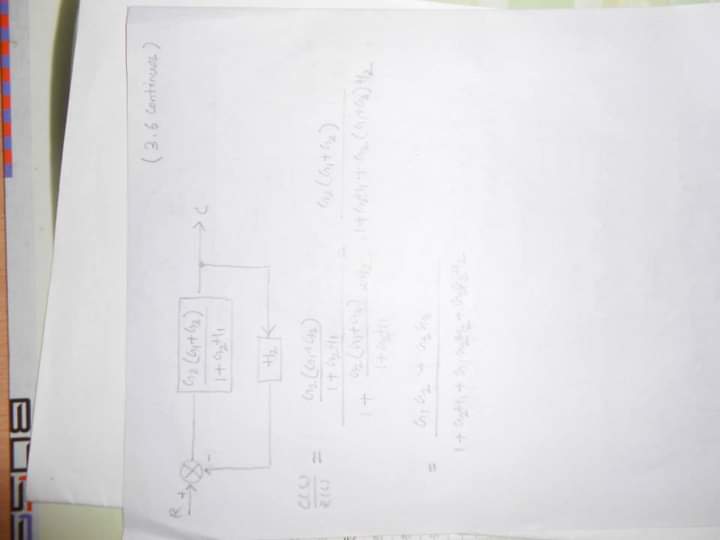 (3.6 continues)
R + C
G2(G1+G2)
1+G2H1
-
H2
C(s)
R(s)
=
G2(G1+G2)
1+G2H1
1+
G2(G1+G2)
1+G2H1
G2(G1+G2)
1+G2H1+G2(G1+G2)H2
=
G1G2 +
1+G2H1+G1G2H2+